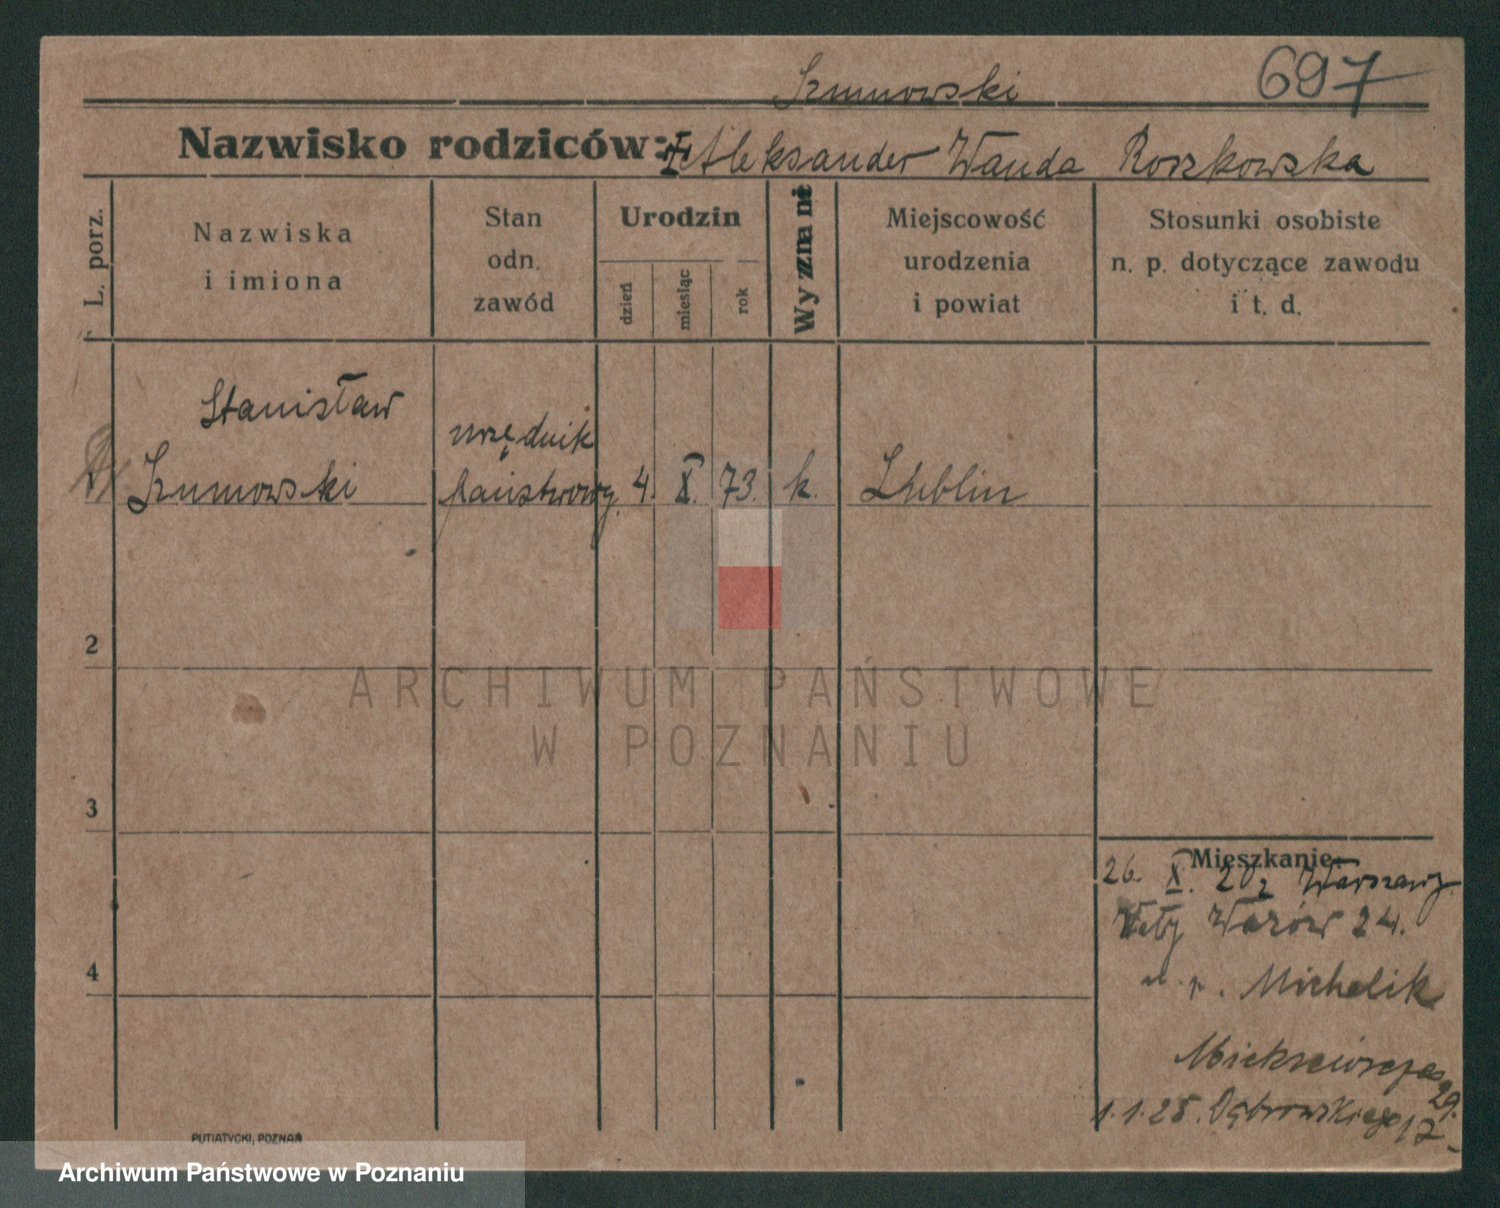 Szumowski 697
Nazwisko rodziców: Aleksander Wanda Roszkowska
L. porz.
Nazwiska
i imiona
Stan
odn.
zawód
Urodzin
dzień
miesiąc
rok
Wyznanie
Miejscowość
urodzenia
i powiat
Stosunki osobiste
n. p. dotyczące zawodu
i t. d.
Stanisław
Szumowski
urzędnik
państwowy.
4. X. 73. k. Lublin
2
3
4
Mieszkanie:
26. X. 20 z Warszawy.
Wały Wazów 24.
u. p. Michalik
29.
1.1.25. Dąbrowskiego 17
PUTIATYCKI, POZNAŃ
ARCHIWUM PAŃSTWOWE
W POZNANIU
Archiwum Państwowe w Poznaniu